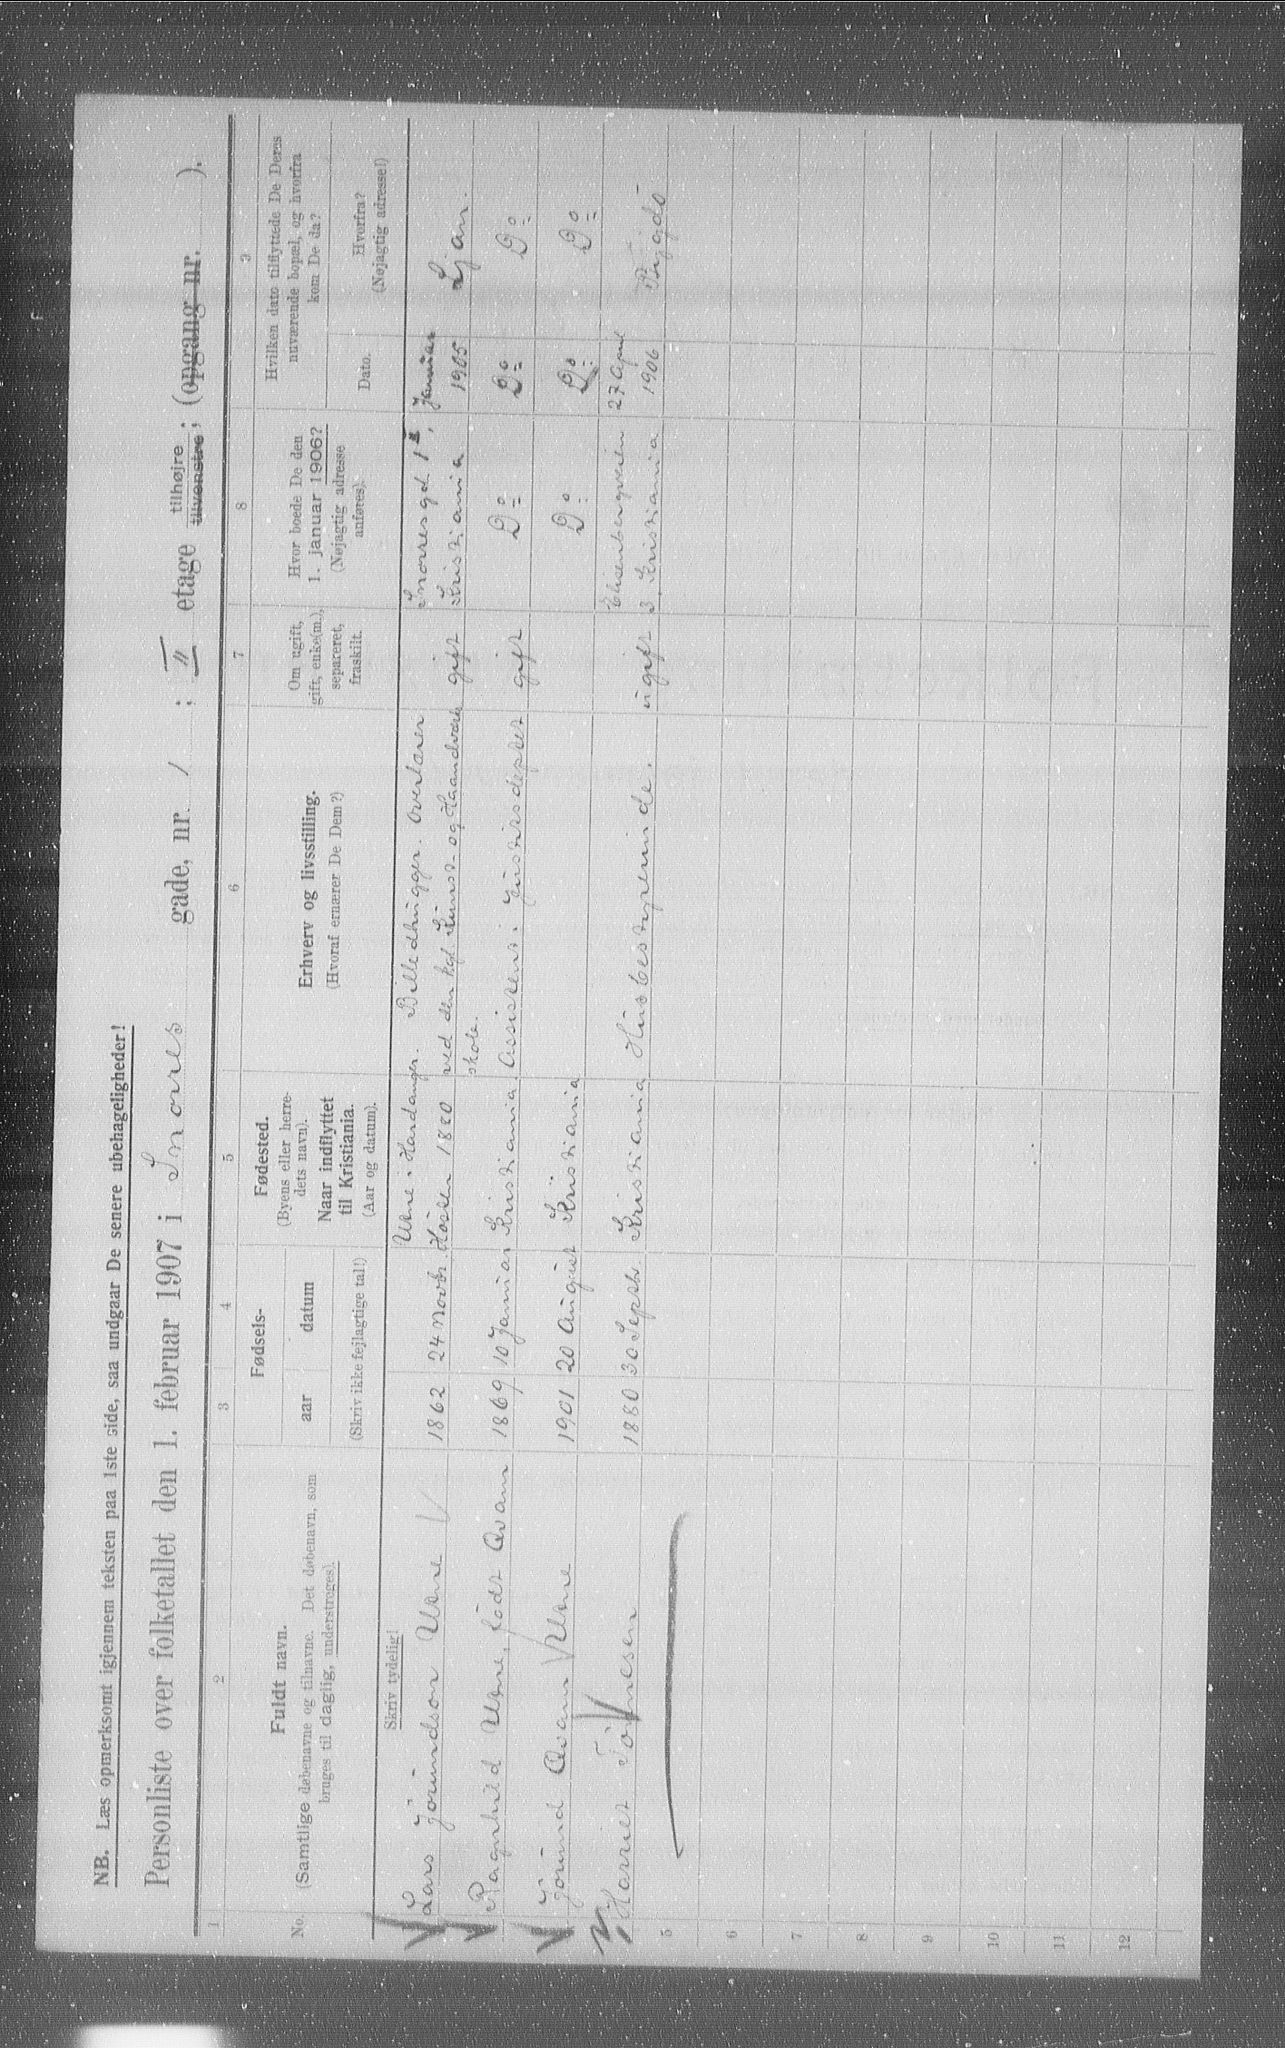 NB. Læs opmerksomt igjennem teksten paa 1ste side, saa undgaar De senere ubehageligheder!
Personliste over folketallet den 1. februar 1907 i Snorres gade, nr. 1 ; II etage tilhøjre tilvenstre; (opgang nr. ).
1 2 3 4 5 6 7 8 9
No.
Fuldt navn.
(Samtlige døbenavne og tilnavne. Det døbenavn, som
bruges til daglig, understreges).
Fødsels-
aar datum
(Skriv ikke fejlagtige tal!)
Fødested.
(Byens eller herre-
dets navn).
Naar indflyttet
til Kristiania.
(Aar og datum).
Erhverv og livsstilling.
(Hvoraf ernærer De Dem?)
Om ugift,
gift, enke(m.),
separeret,
fraskilt.
Hvor boede De den
1. januar 1906?
(Nøjagtig adresse
anføres).
Hvilken dato tilflyttede De Deres
nuværende bopæl, og hvorfra
kom De da?
Dato.
Hvorfra?
(Nøjagtig adresse!)
Skriv tydelig!
Utne i Hardanger. Billedhugger. Overlærer Snorresgd. 1 Januar
Lars Jörundson Utne 1862 24 Novbr. Hösten 1880 ved den kgl Kunst- og Haandværk gift Kristiania 1905 Ljan.
skole.
Ragnhild Utne, födt Qvam 1869 10 Januar Kristiania. Assistent i Justitsdeptet gift Do Do Do
Jörund Qvam Utne 1901 20 August Kristiania Do Do Do
Harriet Tönnesen 1880 30 Septbr. Kristiania Husbestyrerinde. ugift Eilsenbergveien 27 April
3, Kristiania 1906 Bygdö
5
6
7
8
9
10
11
12